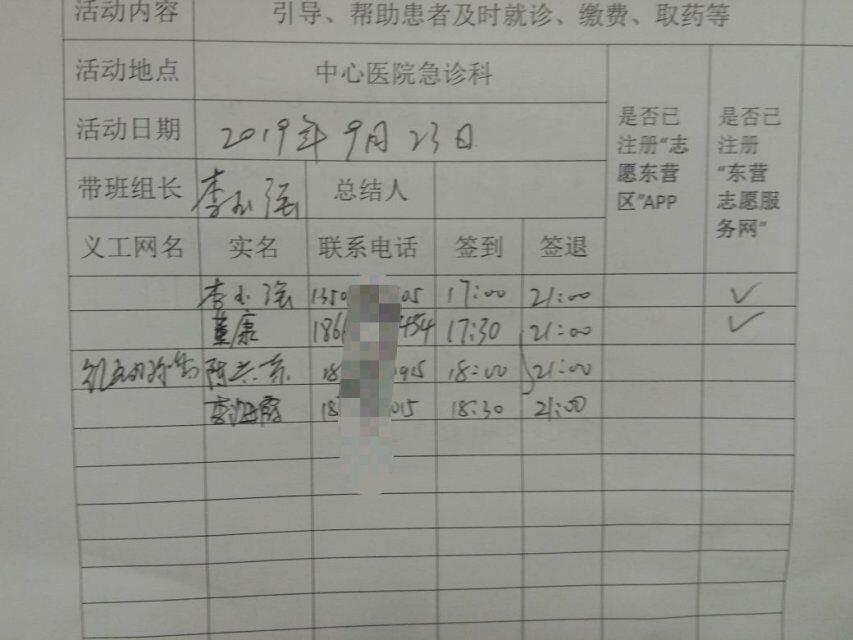 活动内容 引导、帮助患者及时就诊、缴费、取药等
活动地点 中心医院急诊科
活动日期 2019年9月23日
带班组长 李小强 总结人
是否已注册“志愿东营区”APP
是否已注册“东营志愿服务网”
义工网名 实名 联系电话 签到 签退
李小强 1350 05 17:00 21:00 ✓
董康 186 454 17:30 21:00 ✓
陈兴东 18 915 18:00 21:00
李海霞 18 015 18:30 21:00